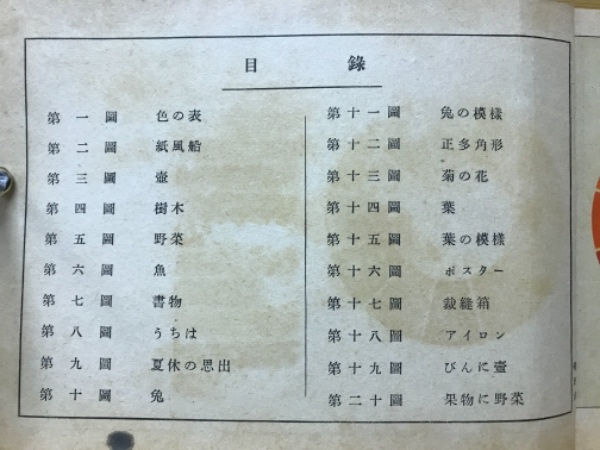 目錄
第一圖 色の表
第二圖 紙風船
第三圖 壺
第四圖 樹木
第五圖 野菜
第六圖 魚
第七圖 書物
第八圖 うちは
第九圖 夏休の思出
第十圖 兔
第十一圖 兔の模樣
第十二圖 正多角形
第十三圖 菊の花
第十四圖 葉
第十五圖 葉の模樣
第十六圖 ポスター
第十七圖 裁縫箱
第十八圖 アイロン
第十九圖 びんに壺
第二十圖 果物に野菜